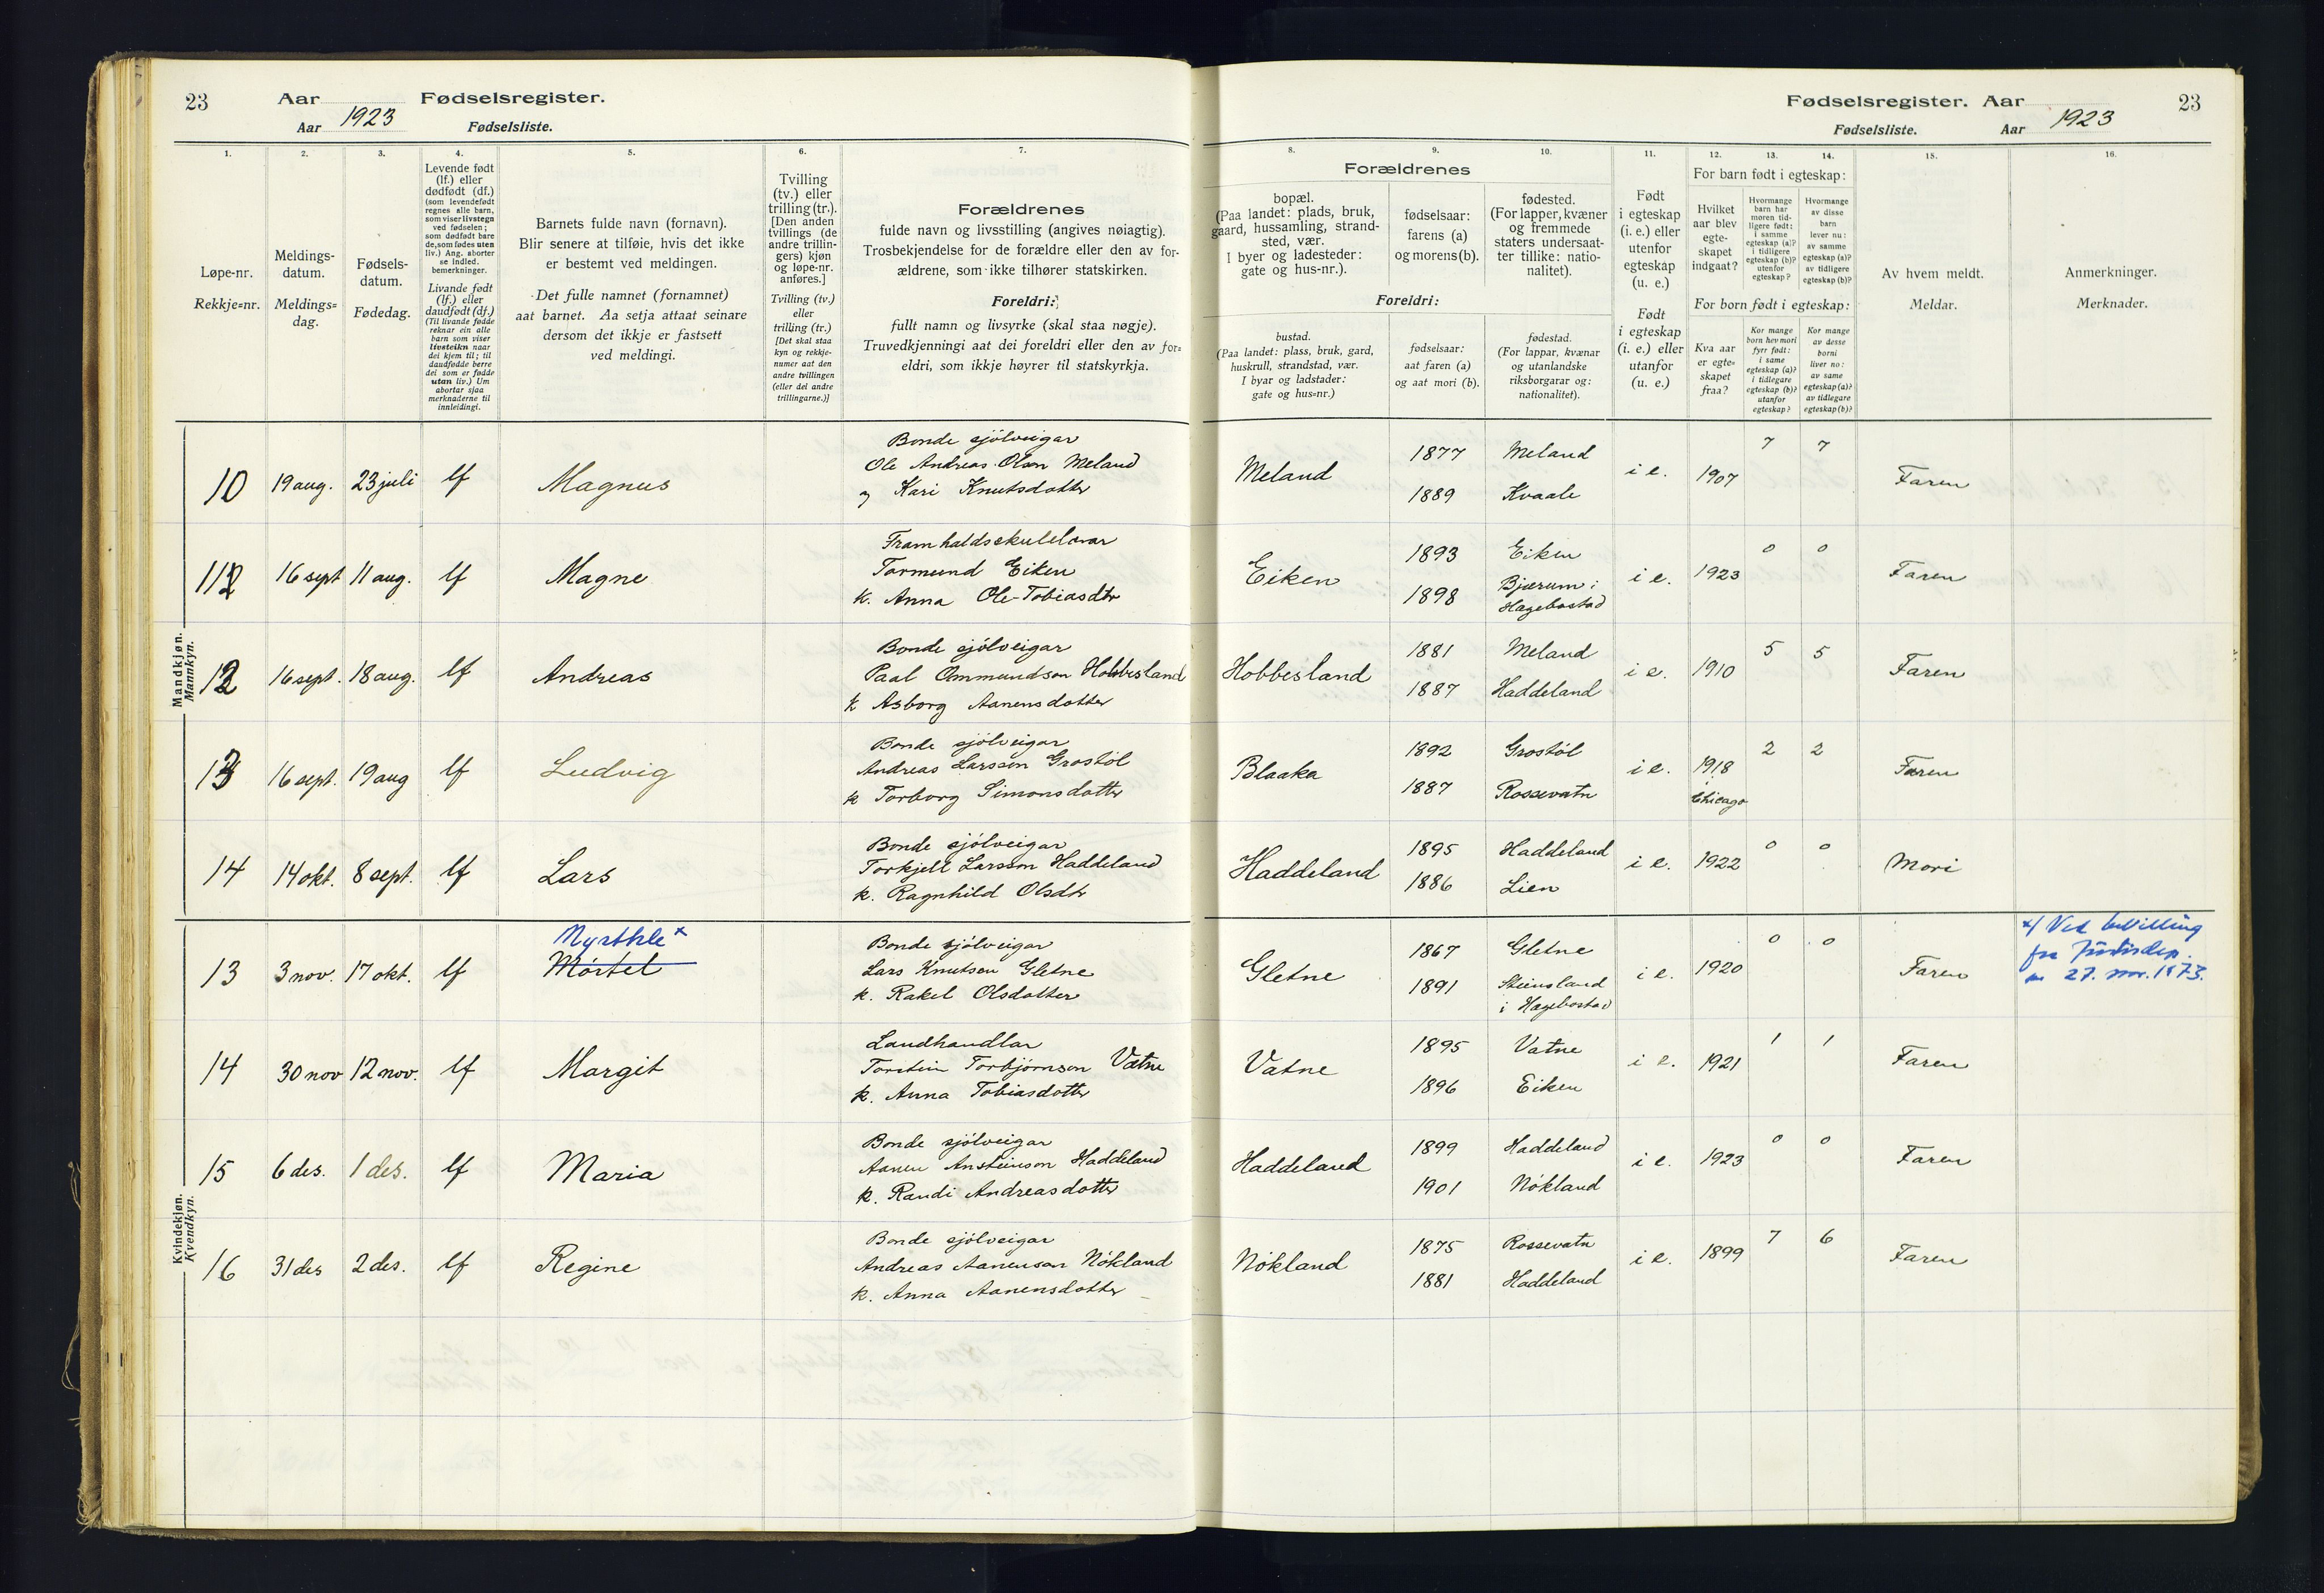 23 Aar Fødselsregister.
Aar 1923 Fødselsliste.
Fødselsregister. Aar 23
Fødselsliste. Aar 1923
1. 2. 3. 4. 5. 6. 7.
Løpe-nr.
Rekkje=nr.
Meldings-
datum.
Meldings=
dag.
Fødsels-
datum.
Fødedag.
Levende født
(lf.) eller
dødfødt (df.)
(som levendefødt
regnes alle barn,
som viser livstegn
ved fødselen;
som dødfødt bare
de, som fødes uten
liv.) Ang. aborter
se indled.
bemerkninger.
Livande født
(lf.) eller
daudfødt (df.)
(Til livande fødde
reknar ein alle
barn som viser
livsteikn naar
dei kjem til; til
daudfødde berre
dei som er fødde
utan liv.) Um
abortar sjaa
merknaderne til
innleidingi.
Barnets fulde navn (fornavn).
Blir senere at tilføie, hvis det ikke
er bestemt ved meldingen.
Det fulle namnet (fornamnet)
aat barnet. Aa setja attaat seinare
dersom det ikkje er fastsett
ved meldingi.
Tvilling
(tv.) eller
trilling (tr.).
[Den anden
tvillings (de
andre trillin-
gers) kjøn
og løpe-nr.
anføres.]
Tvilling (tv.)
eller
trilling (tr.)
[Det skal staa
kyn og rekkje-
numer aat den
andre tvillingen
(eller dei andre
trillingarne.)]
Forældrenes
fulde navn og livsstilling (angives nøiagtig).
Trosbekjendelse for de forældre eller den av for-
ældrene, som ikke tilhører statskirken.
Foreldri:
fullt namn og livsyrke (skal staa nøgje).
Truvedkjenningi aat dei foreldri eller den av for=
eldri, som ikkje høyrer til statskyrkja.
8. 9. 10. 11. 12. 13. 14. 15. 16.
Forældrenes
bopæl.
(Paa landet: plads, bruk,
gaard, hussamling, strand-
sted, vær.
I byer og ladesteder:
gate og hus-nr.).
fødselsaar:
farens (a)
og morens (b).
fødested.
(For lapper, kvæner
og fremmede
staters undersaat-
ter tillike: natio-
nalitet).
Foreldri:
bustad.
(Paa landet: plass, bruk, gard,
huskrull, strandstad, vær.
I byar og ladstader:
gate og hus=nr.)
fødselsaar:
aat faren (a)
og aat mori (b).
fødestad.
(For lappar, kvænar
og utanlandske
riksborgarar og:
nationalitet).
Født
i egteskap
(i. e.) eller
utenfor
egteskap
(u. e.)
Født
i egteskap
(i. e.) eller
utanfor
(u. e.)
For barn født i egteskap:
Hvilket
aar blev
egte-
skapet
indgaat?
Hvormange
barn har
moren tid-
ligere født:
i samme
egteskap (a)?
i tidligere
egteskap (b)?
utenfor
egteskap?
Hvormange
av disse
barn
lever nu:
av samme
egteskap (a)?
av tidligere
egteskap (b)?
For born født i egteskap:
Kva aar
er egte-
skapet
fraa?
Kor mange
born hev mori
fyrr født:
i same
egteskap (a)?
i tidlegare
egteskap (b)?
utanfor
egteskap?
Kor mange
av desse
borni
liver no:
av same
egteskap (a)?
av tidlegare
egteskap (b)?
Av hvem meldt.
Meldar.
Anmerkninger.
Merknader.
Mandkjøn.
Mannkyn.
Bonde sjölveigar
10 19 aug. 23 juli lf Magnus Ole Andreas Olson Meland
og Kari Knutsdotter
Meland 1877 Meland i e. 1907 7 7 Faren
1889 Kvaale
Framhaldsskulelærar
11 16 sept 11 aug. lf Magne Tormund Eiken
k. Anna Ole-Tobiasdtr
Eiken 1893 Eiken i e. 1923 0 0 Faren
1898 Bjærum i
Hægebostad
Bonde sjölveigar
12 16 sept. 18 aug. lf Andreas Paal Ommundson Hobbesland
k Asborg Aanensdotter
Hobbesland 1881 Meland i e. 1910 5 5 Faren
1887 Haddeland
Bonde sjölveigar
13 16 sept. 19 aug lf Ludvig Andreas Larsson Grostöl
k Torborg Simonsdotter
Blaaka 1892 Grostöl i e. 1918 2 2 Faren
1887 Rossevatn i Chicago
Bonde sjölveigar
14 14 okt. 8 sept. lf Lars Torkjell Larsson Haddeland
k. Ragnhild Olsdtr
Haddeland 1895 Haddeland i e. 1922 0 0 Mori
1886 Lien
Kvindekjøn.
Kvendkyn.
Myrthle x
Bonde sjölveigar
13 3 nov. 17 okt. lf Mörtel Lars Knutsen Gletne
k. Rakel Olsdotter
Gletne 1867 Gletne i e. 1920 0 0 Faren
1891 Steinsland
i Hægebostad
x/ Ved bevilling
fra Justisdep.
av 27. nov. 1973.
Landhandlar
14 30 nov 12 nov. lf Margit Torstein Torbjørnson Vatne
k. Anna Tobiasdotter
Vatne 1895 Vatne i e. 1921 1 1 Faren
1896 Eiken
Bonde sjölveigar
15 6 des. 1 des. lf Maria Aanen Ansteinson Haddeland
k. Randi Andreasdotter
Haddeland 1899 Haddeland i e. 1923 0 0 Faren
1901 Nökland
Bonde sjölveigar
16 31 des 2 des. lf Regine Andreas Aanenson Nökland
k. Anna Aanensdotter
Nökland 1875 Rossevatn i e. 1899 7 6 Faren
1881 Haddeland